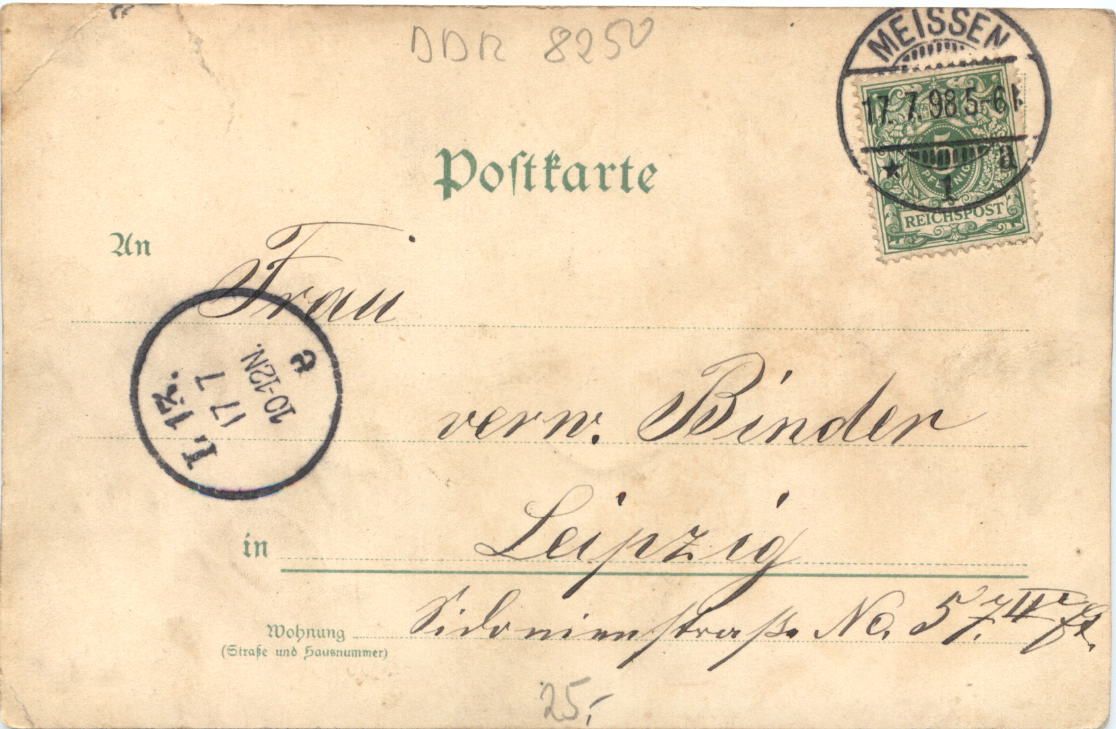 DDR 8250
MEISSEN
17. 7. 98 5-6N
* 1 a
5
PFENNIG
REICHSPOST
Postkarte
An
Frau
L. 13.
17 7
10-12N.
e
verw. Binder
in Leipzig
Wohnung Sidonienstraße No. 57. II
(Straße und Hausnummer)
25,-